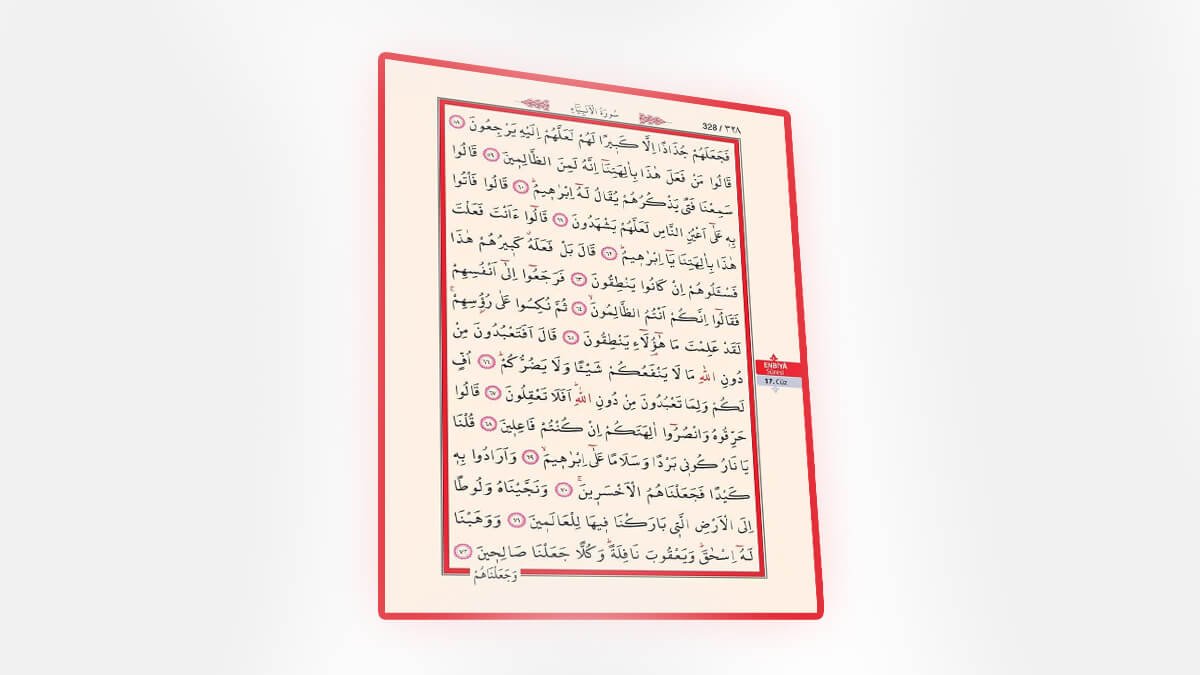 سُورَةُ الْاَنْبِيَاءِ
328 / ٣٢٨
فَجَعَلَهُمْ جُذَاذًا اِلَّا كَبٖيرًا لَهُمْ لَعَلَّهُمْ اِلَيْهِ يَرْجِعُونَ ﴿٥٨﴾
قَالُوا مَنْ فَعَلَ هٰذَا بِاٰلِهَتِنَٓا اِنَّهُ لَمِنَ الظَّالِمٖينَ ﴿٥٩﴾ قَالُوا
سَمِعْنَا فَتًى يَذْكُرُهُمْ يُقَالُ لَهُٓ اِبْرٰهٖيمُؕ ﴿٦٠﴾ قَالُوا فَأْتُوا
بِهٖ عَلٰٓى اَعْيُنِ النَّاسِ لَعَلَّهُمْ يَشْهَدُونَ ﴿٦١﴾ قَالُٓوا ءَاَنْتَ فَعَلْتَ
هٰذَا بِاٰلِهَتِنَا يَٓا اِبْرٰهٖيمُؕ ﴿٦٢﴾ قَالَ بَلْ فَعَلَهُۗ كَبٖيرُهُمْ هٰذَا
فَسْـَٔلُوهُمْ اِنْ كَانُوا يَنْطِقُونَ ﴿٦٣﴾ فَرَجَعُٓوا اِلٰٓى اَنْفُسِهِمْ
فَقَالُٓوا اِنَّكُمْ اَنْتُمُ الظَّالِمُونَۙ ﴿٦٤﴾ ثُمَّ نُكِسُوا عَلٰى رُؤُ۫سِهِمْۚ
لَقَدْ عَلِمْتَ مَا هٰٓؤُ۬لَٓاءِ يَنْطِقُونَ ﴿٦٥﴾ قَالَ اَفَتَعْبُدُونَ مِنْ
دُونِ اللّٰهِ مَا لَا يَنْفَعُكُمْ شَيْـًٔا وَلَا يَضُرُّكُمْؕ ﴿٦٦﴾ اُفٍّ
لَكُمْ وَلِمَا تَعْبُدُونَ مِنْ دُونِ اللّٰهِؕ اَفَلَا تَعْقِلُونَ ﴿٦٧﴾ قَالُوا
حَرِّقُوهُ وَانْصُرُٓوا اٰلِهَتَكُمْ اِنْ كُنْتُمْ فَاعِلٖينَ ﴿٦٨﴾ قُلْنَا
يَا نَارُ كُونٖى بَرْدًا وَسَلَامًا عَلٰٓى اِبْرٰهٖيمَۙ ﴿٦٩﴾ وَاَرَادُوا بِهٖ
كَيْدًا فَجَعَلْنَاهُمُ الْاَخْسَرٖينَۚ ﴿٧٠﴾ وَنَجَّيْنَاهُ وَلُوطًا
اِلَى الْاَرْضِ الَّتٖى بَارَكْنَا فٖيهَا لِلْعَالَمٖينَ ﴿٧١﴾ وَوَهَبْنَا
لَهُٓ اِسْحٰقَؕ وَيَعْقُوبَ نَافِلَةًؕ وَكُلًّا جَعَلْنَا صَالِحٖينَ ﴿٧٢﴾
وَجَعَلْنَاهُمْ
ENBİYÂ
Sûresi
17. Cüz